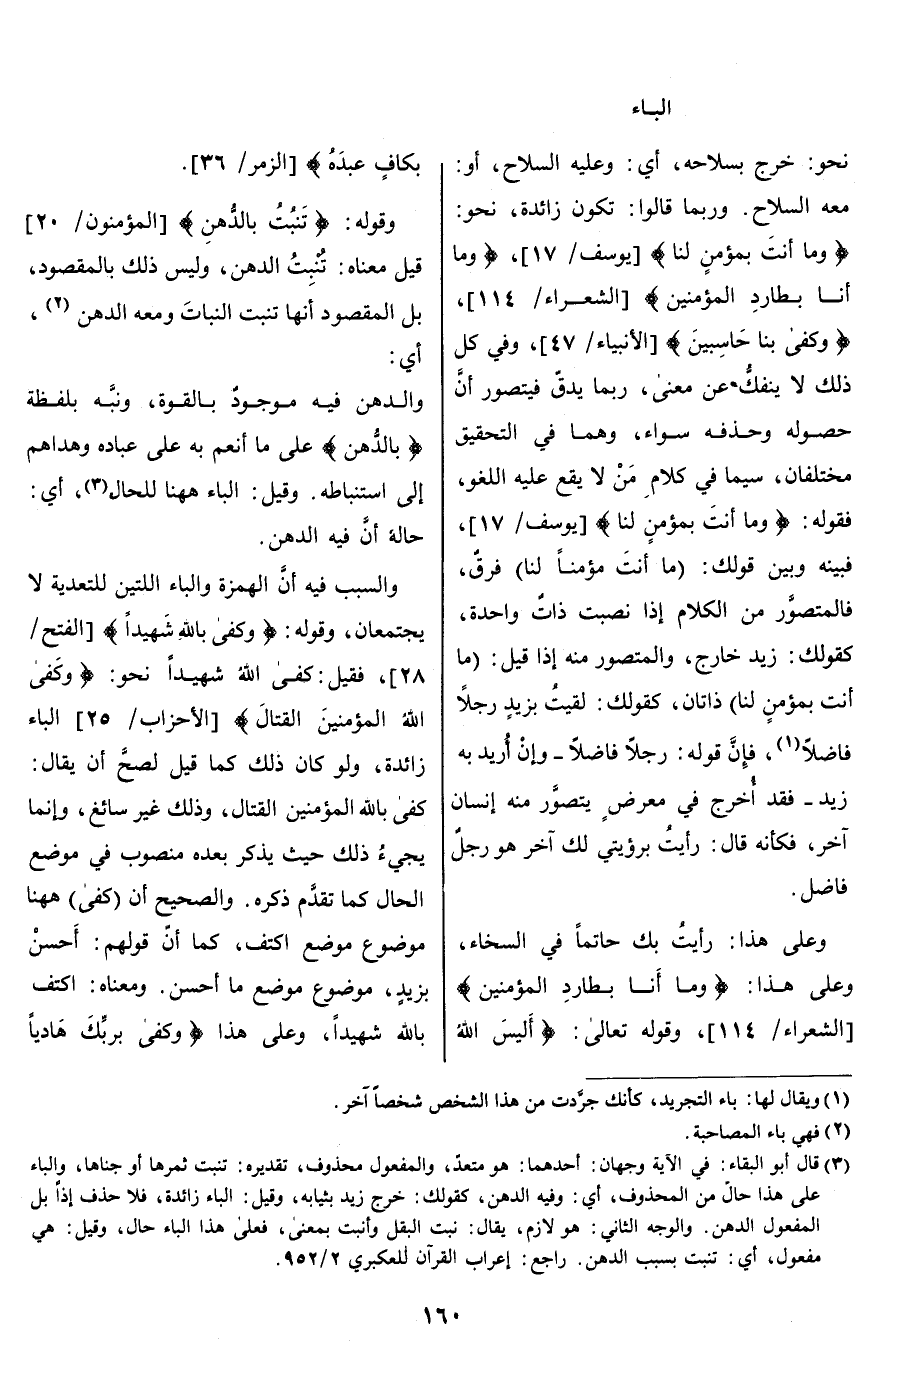 البـاء
نحو: خرج بسلاحه، أي: وعليه السلاح، أو:
معه السلاح. وربما قالوا: تكون زائدة، نحو:
﴿ وما أنتَ بمؤمنٍ لنا ﴾ [يوسف/ ١٧]، ﴿ وما
أنـا بـطاردِ المؤمنين ﴾ [الشعـراء/ ١١٤]،
﴿ وكفىٰ بنا حَاسِبينَ ﴾ [الأنبياء/ ٤٧]، وفي كل
ذلك لا ينفكُّ عن معنىٰ، ربما يدقّ فيتصور أنَّ
حصـوله وحـذفـه سـواء، وهمـا في التحقيق
مختلفان، سيما في كلامِ مَنْ لا يقع عليه اللغو،
فقوله: ﴿ وما أنتَ بمؤمنٍ لنا ﴾ [يوسف/ ١٧]،
فبينه وبين قولك: (ما أنتَ مؤمنـاً لنا) فرقٌ،
فالمتصوَّر من الكلام إذا نصبت ذاتٌ واحدة،
كقولك: زيد خارج، والمتصور منه إذا قيل: (ما
أنت بمؤمنٍ لنا) ذاتان، كقولك: لقيتُ بزيدٍ رجلاً
فاضلاً(١)، فإنَّ قوله: رجلاً فاضلاً ـ وإنْ أُريد به
زيد ـ فقد أُخرج في معرضٍ يتصوَّر منه إنسان
آخر، فكأنه قال: رأيتُ برؤيتي لك آخر هو رجلٌ
فاضل.
وعلى هذا: رأيتُ بك حاتماً في السخاء،
وعلى هـذا: ﴿ ومـا أَنـا بـطاردِ المؤمنين ﴾
[الشعراء/ ١١٤]، وقوله تعالىٰ: ﴿ أَليسَ اللهُ
بكافٍ عبدَهُ ﴾ [الزمر/ ٣٦].
وقوله: ﴿ تَنبُتُ بالدُّهنِ ﴾ [المؤمنون/ ٢٠]
قيل معناه: تُنْبِتُ الدهن، وليس ذلك بالمقصود،
بل المقصود أنها تنبت النباتَ ومعه الدهن (٢)،
أي:
والـدهن فيـه مـوجـودٌ بـالقـوة، ونبَّـه بلفـظة
﴿ بالدُّهن ﴾ على ما أنعم به على عباده وهداهم
إلى استنباطه. وقيل: الباء ههنا للحال(٣)، أي:
حالة أنَّ فيه الدهن.
والسبب فيه أنَّ الهمزة والباء اللتين للتعدية لا
يجتمعان، وقوله: ﴿ وكفىٰ باللهِ شَهيداً ﴾ [الفتح/
٢٨]، فقيل: كفـىٰ اللهُ شهيـداً نحو: ﴿ وكَفىٰ
اللهُ المؤمنينَ القتالَ ﴾ [الأحزاب/ ٢٥] الباء
زائدة، ولو كان ذلك كما قيل لصحَّ أن يقال:
كفىٰ بالله المؤمنين القتال، وذلك غير سائغ، وإنما
يجيءُ ذلك حيث يذكر بعده منصوب في موضع
الحال كما تقدَّم ذكره. والصحيح أن (كفىٰ) ههنا
موضوع موضع اكتف، كما أنّ قولهم: أَحسنْ
بزيدٍ، موضوع موضع ما أحسن. ومعناه: اكتف
بالله شهيداً، وعلى هذا ﴿ وكفىٰ بربِّكَ هَادياً
(١) ويقال لها: باء التجريد، كأنك جرَّدت من هذا الشخص شخصاً آخر.
(٢) فهي باء المصاحبة.
(٣) قال أبو البقاء: في الآية وجهان: أحدهما: هو متعدٍّ، والمفعول محذوف، تقديره: تنبت ثمرها أو جناها، والباء
على هذا حالٌ من المحذوف، أي: وفيه الدهن، كقولك: خرج زيد بثيابه، وقيل: الباء زائدة، فلا حذف إذاً بل
المفعول الدهن. والوجه الثاني: هو لازم، يقال: نبت البقل وأنبت بمعنىٰ، فعلىٰ هذا الباء حال، وقيل: هي
مفعول، أي: تنبت بسبب الدهن. راجع: إعراب القرآن للعكبري ٩٥٢/٢.
١٦٠